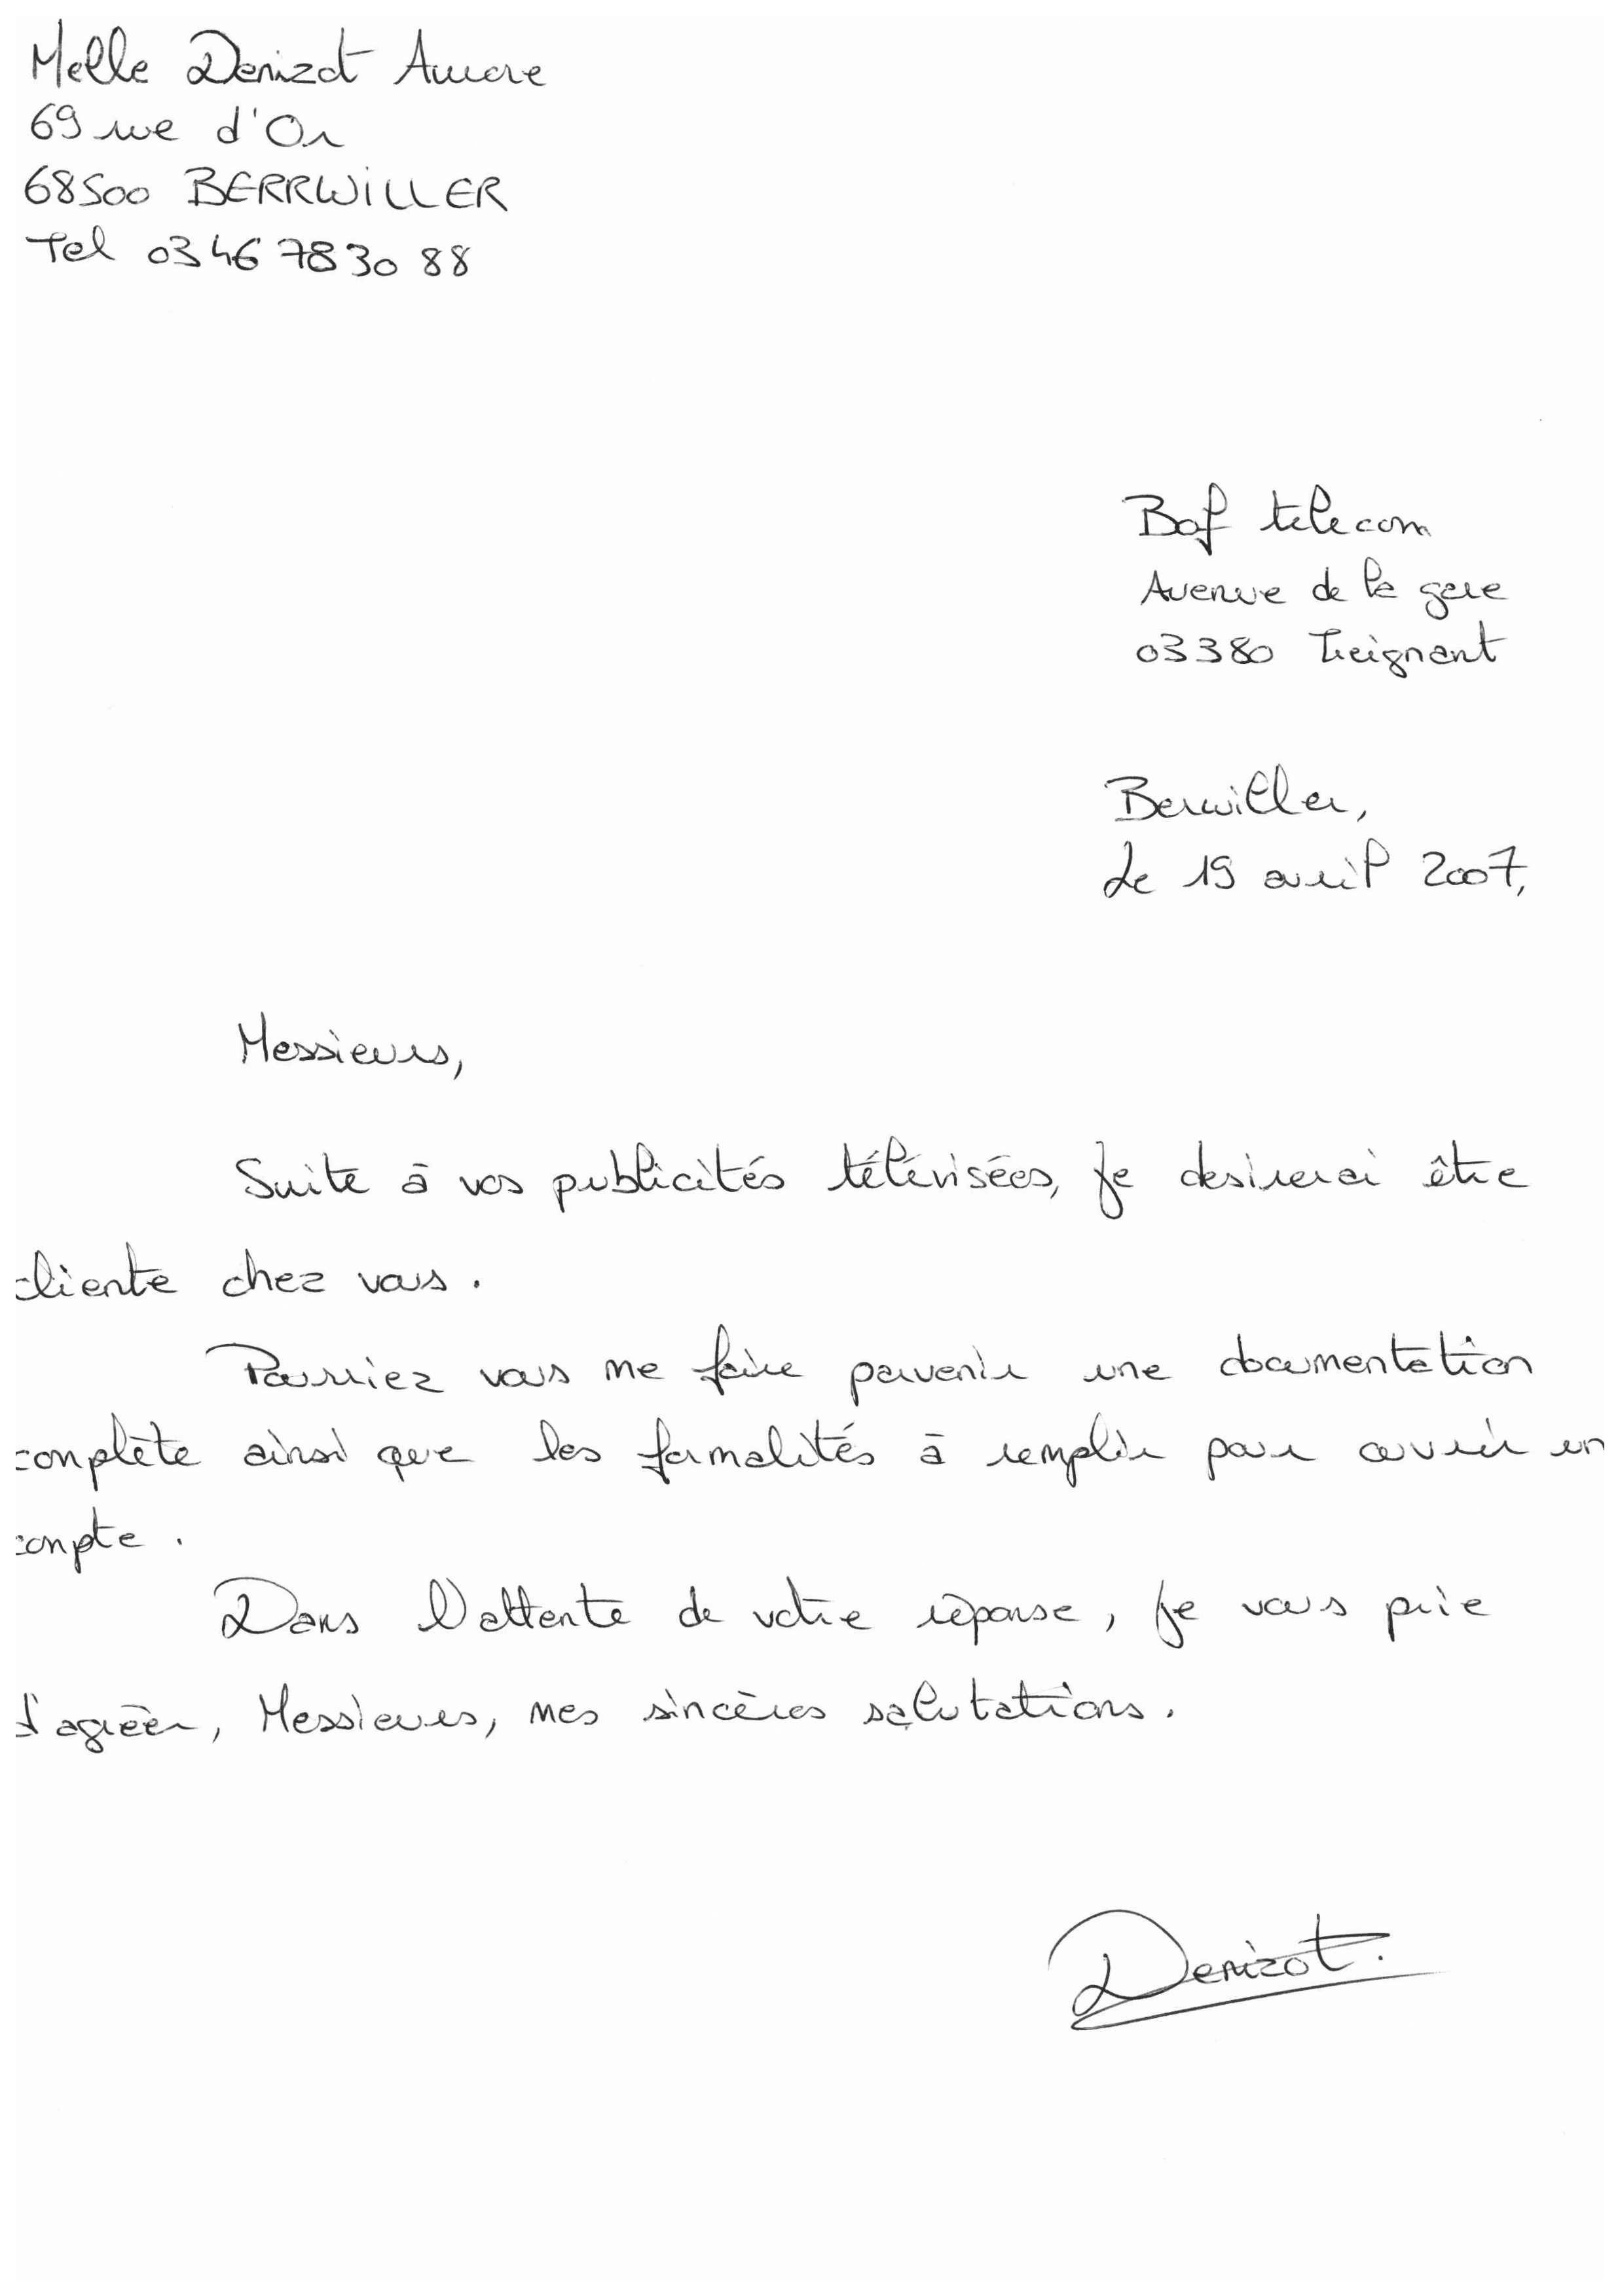 Melle Denizot Aurore
69 rue d'Or
68500 BERRWILLER
Tel 03 46 78 30 88
Bof telecom
Avenue de la gare
03380 Treignant
Berrwiller,
Le 19 avril 2007,
Messieurs,
Suite à vos publicités télévisées, je desirerai être
cliente chez vous.
Pourriez vous me faire parvenir une documentation
complète ainsi que les formalités à remplir pour ouvrir un
compte.
Dans l'attente de votre réponse, je vous prie
d'agréer, Messieurs, mes sincères salutations.
Denizot.